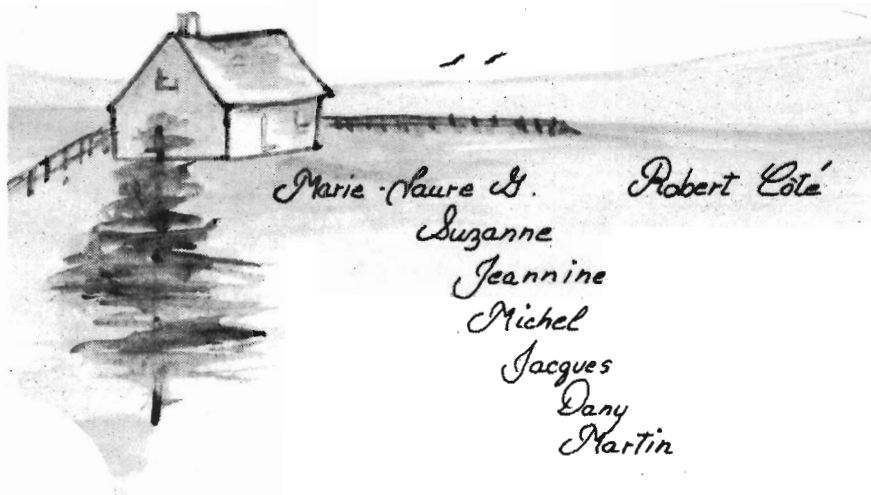 Marie-Laure G. Robert Côté
Suzanne
Jeannine
Michel
Jacques
Dany
Martin